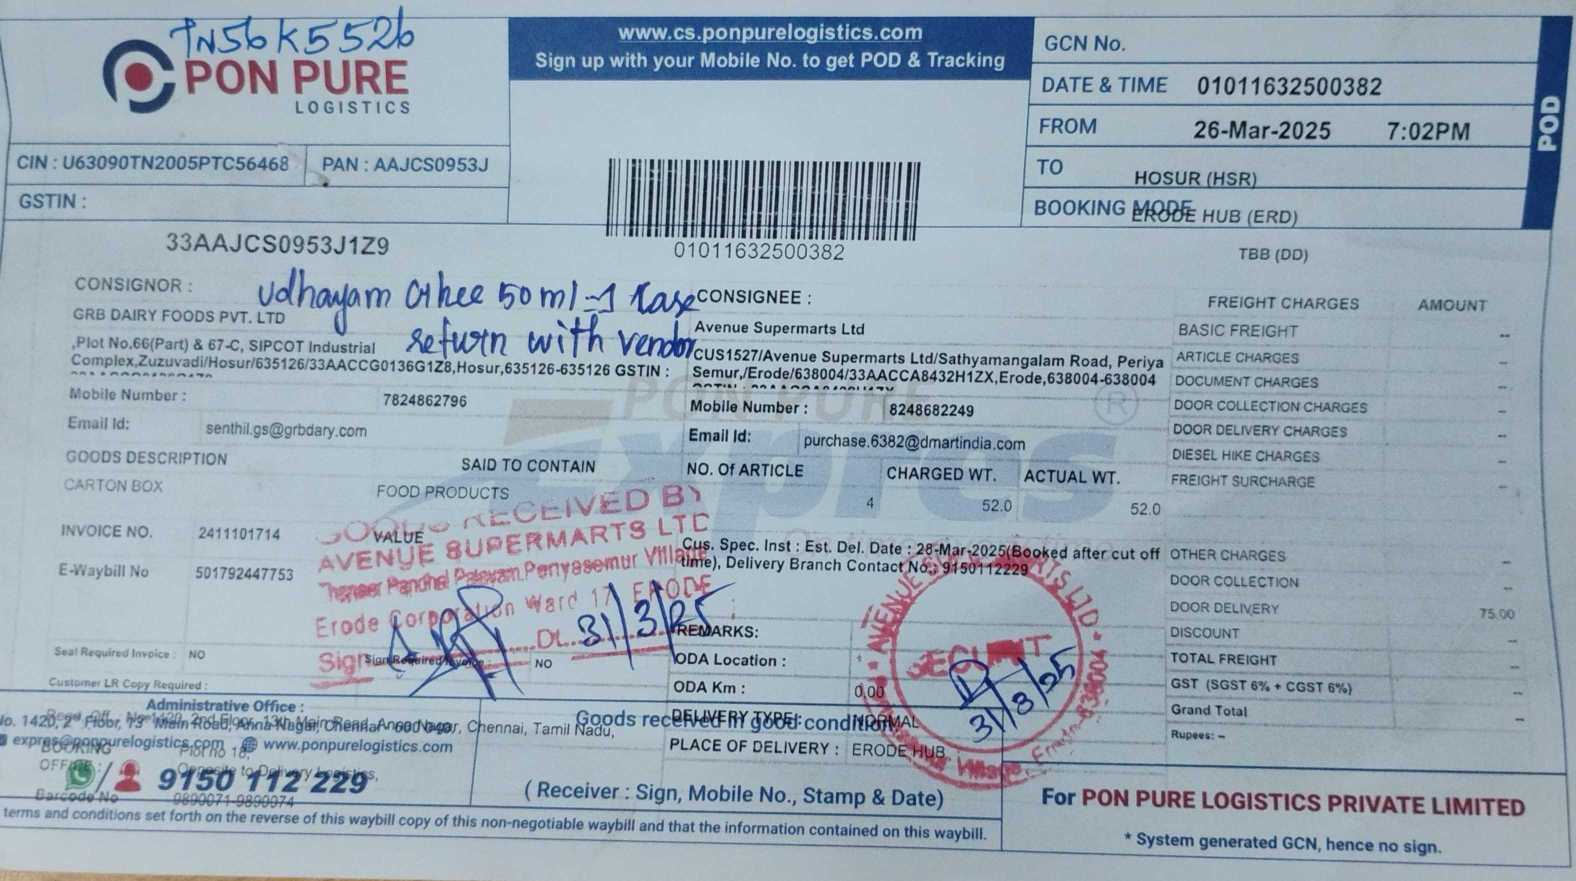 TN56K5526
PON PURE
LOGISTICS
CIN : U63090TN2005PTC56468
PAN : AAJCS0953J
GSTIN :
33AAJCS0953J1Z9
www.cs.ponpurelogistics.com
Sign up with your Mobile No. to get POD & Tracking
01011632500382
GCN No.
DATE & TIME 01011632500382
FROM 26-Mar-2025 7:02PM
TO HOSUR (HSR)
BOOKING MODE ERODE HUB (ERD)
TBB (DD)
POD
CONSIGNOR :
Udhayam Ghee 50 ml - 1 Case
return with vendor
GRB DAIRY FOODS PVT. LTD
,Plot No.66(Part) & 67-C, SIPCOT Industrial
Complex,Zuzuvadi/Hosur/635126/33AACCG0136G1Z8,Hosur,635126-635126 GSTIN :
Mobile Number : 7824862796
Email Id: senthil.gs@grbdary.com
CONSIGNEE :
Avenue Supermarts Ltd
CUS1527/Avenue Supermarts Ltd/Sathyamangalam Road, Periya
Semur,/Erode/638004/33AACCA8432H1ZX,Erode,638004-638004
Mobile Number : 8248682249
Email Id: purchase.6382@dmartindia.com
PON PURE
Expres
®
GOODS DESCRIPTION
SAID TO CONTAIN
CARTON BOX
FOOD PRODUCTS
NO. Of ARTICLE
CHARGED WT.
ACTUAL WT.
4
52.0
52.0
INVOICE NO. 2411101714
VALUE
E-Waybill No 501792447753
Cus. Spec. Inst : Est. Del. Date : 28-Mar-2025(Booked after cut off
time), Delivery Branch Contact No.: 9150112229
GOODS RECEIVED BY
AVENUE SUPERMARTS LTD
Village
Erode Corporation Ward 17, ERODE
Sign
Dt. 31/3/25
Seal Required Invoice : NO
Sign Required Invoice : NO
Customer LR Copy Required :
REMARKS:
ODA Location :
ODA Km : 0.00
DELIVERY TYPE : NORMAL
PLACE OF DELIVERY : ERODE HUB
FREIGHT CHARGES AMOUNT
BASIC FREIGHT --
ARTICLE CHARGES --
DOCUMENT CHARGES --
DOOR COLLECTION CHARGES --
DOOR DELIVERY CHARGES --
DIESEL HIKE CHARGES --
FREIGHT SURCHARGE --
OTHER CHARGES --
DOOR COLLECTION --
DOOR DELIVERY 75.00
DISCOUNT --
TOTAL FREIGHT --
GST (SGST 6% + CGST 6%) --
Grand Total --
Rupees: --
AVENUE SUPERMARTS LTD
Village, Erode-638004
31/3/25
Administrative Office :
Chennai, Tamil Nadu,
expres@ponpurelogistics.com
www.ponpurelogistics.com
BOOKING
Plot no 18,
OFFICE :
Opposite to Delivery Logistics,
9150 112 229
Barcode No 9890071-9890074
Goods received in good condition.
( Receiver : Sign, Mobile No., Stamp & Date)
terms and conditions set forth on the reverse of this waybill copy of this non-negotiable waybill and that the information contained on this waybill.
For PON PURE LOGISTICS PRIVATE LIMITED
* System generated GCN, hence no sign.